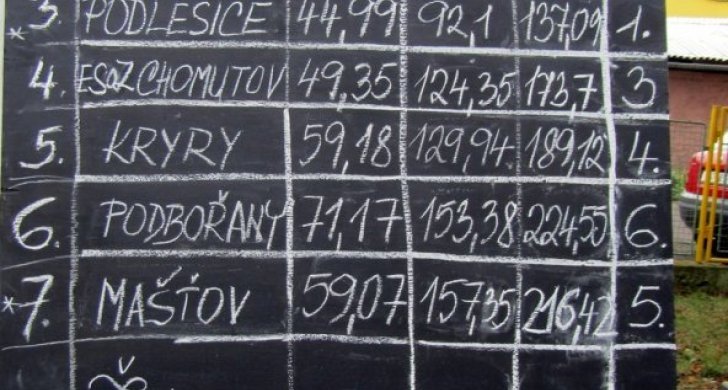 *3. PODLESICE 44,99 92,1 137,09 1.
4. ESOZ CHOMUTOV 49,35 124,35 173,7 3
5. KRYRY 59,18 129,94 189,12 4.
6. PODBOŘANY 71,17 153,38 224,55 6.
*7. MAŠŤOV 59,07 157,35 216,42 5.